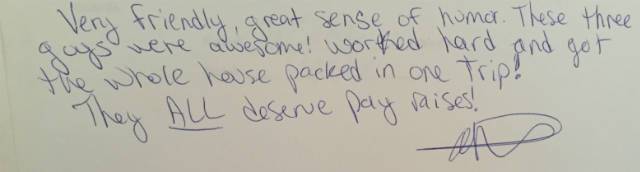 Very friendly, great sense of humor. These three
guys were awesome! worked hard and got
the whole house packed in one Trip!
They ALL deserve pay raises!